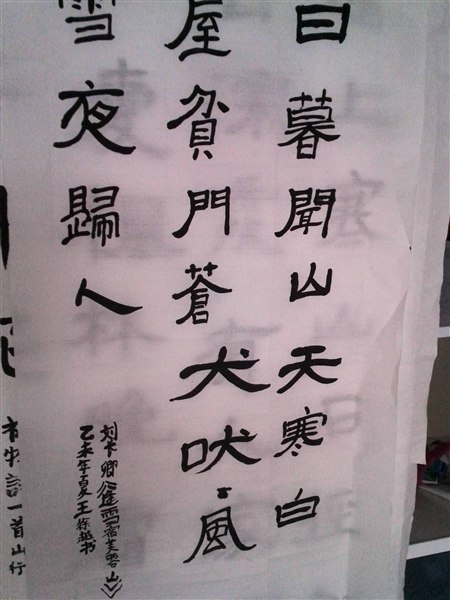 日暮聞山天寒白
屋貧門蒼犬吠風
雪夜歸人
刘长卿逢雪宿芙蓉山
乙未年夏王越书
诗一首山行